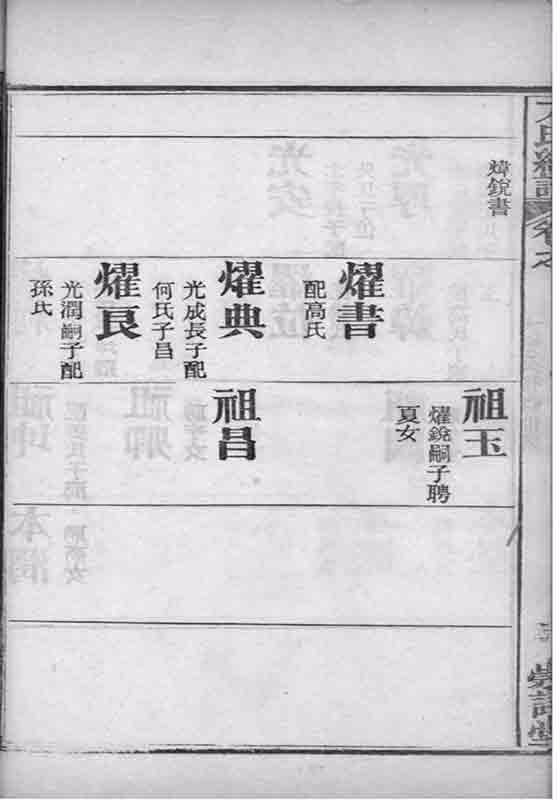 煒銳書
燿書
配高氏
燿典
光成長子配
何氏子昌
燿良
光潤嗣子配
孫氏
祖玉
燿銳嗣子聘
夏女
祖昌